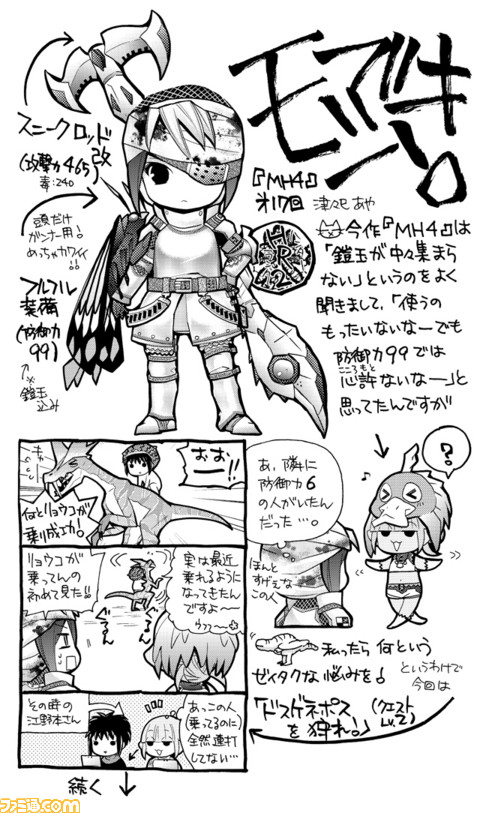 モンでき!
『MH4』
オ17回 津々巳 あや
今作『MH4』は
「鎧玉が中々集まら
ない」というのをよく
聞きまして、「使うの
もったいないなーでも
防御力99では
心許ないなー」と
こころもと
思ってたんですが
スニークロッド
改
(攻撃力465)
毒:240
頭だけ
ガンナー用!
めっちゃカワイイ
!!
フルフル
装備
(防御力
99)
※
鎧玉
込み
HR
42
?
♪
あ、隣に
防御力6
の人がいたん
だった…。
ほんと
すげえな
この人
私ったら 何という
ゼイタクな悩みを!
というわけで
今回は
「ドスゲネポス
を狩れ!」
(クエスト
Lv.2)
おお
ーー!!
何とリョウコが
乗り成功!
リョウコが
乗ってんの
初めて見た!!
実は最近
乗れるように
なってきたん
ですよ〜
ウフフ〜
その時の
江野本さん
あっこの人
(乗ってるのに)
全然連打
してない…
続く
ファミ通com